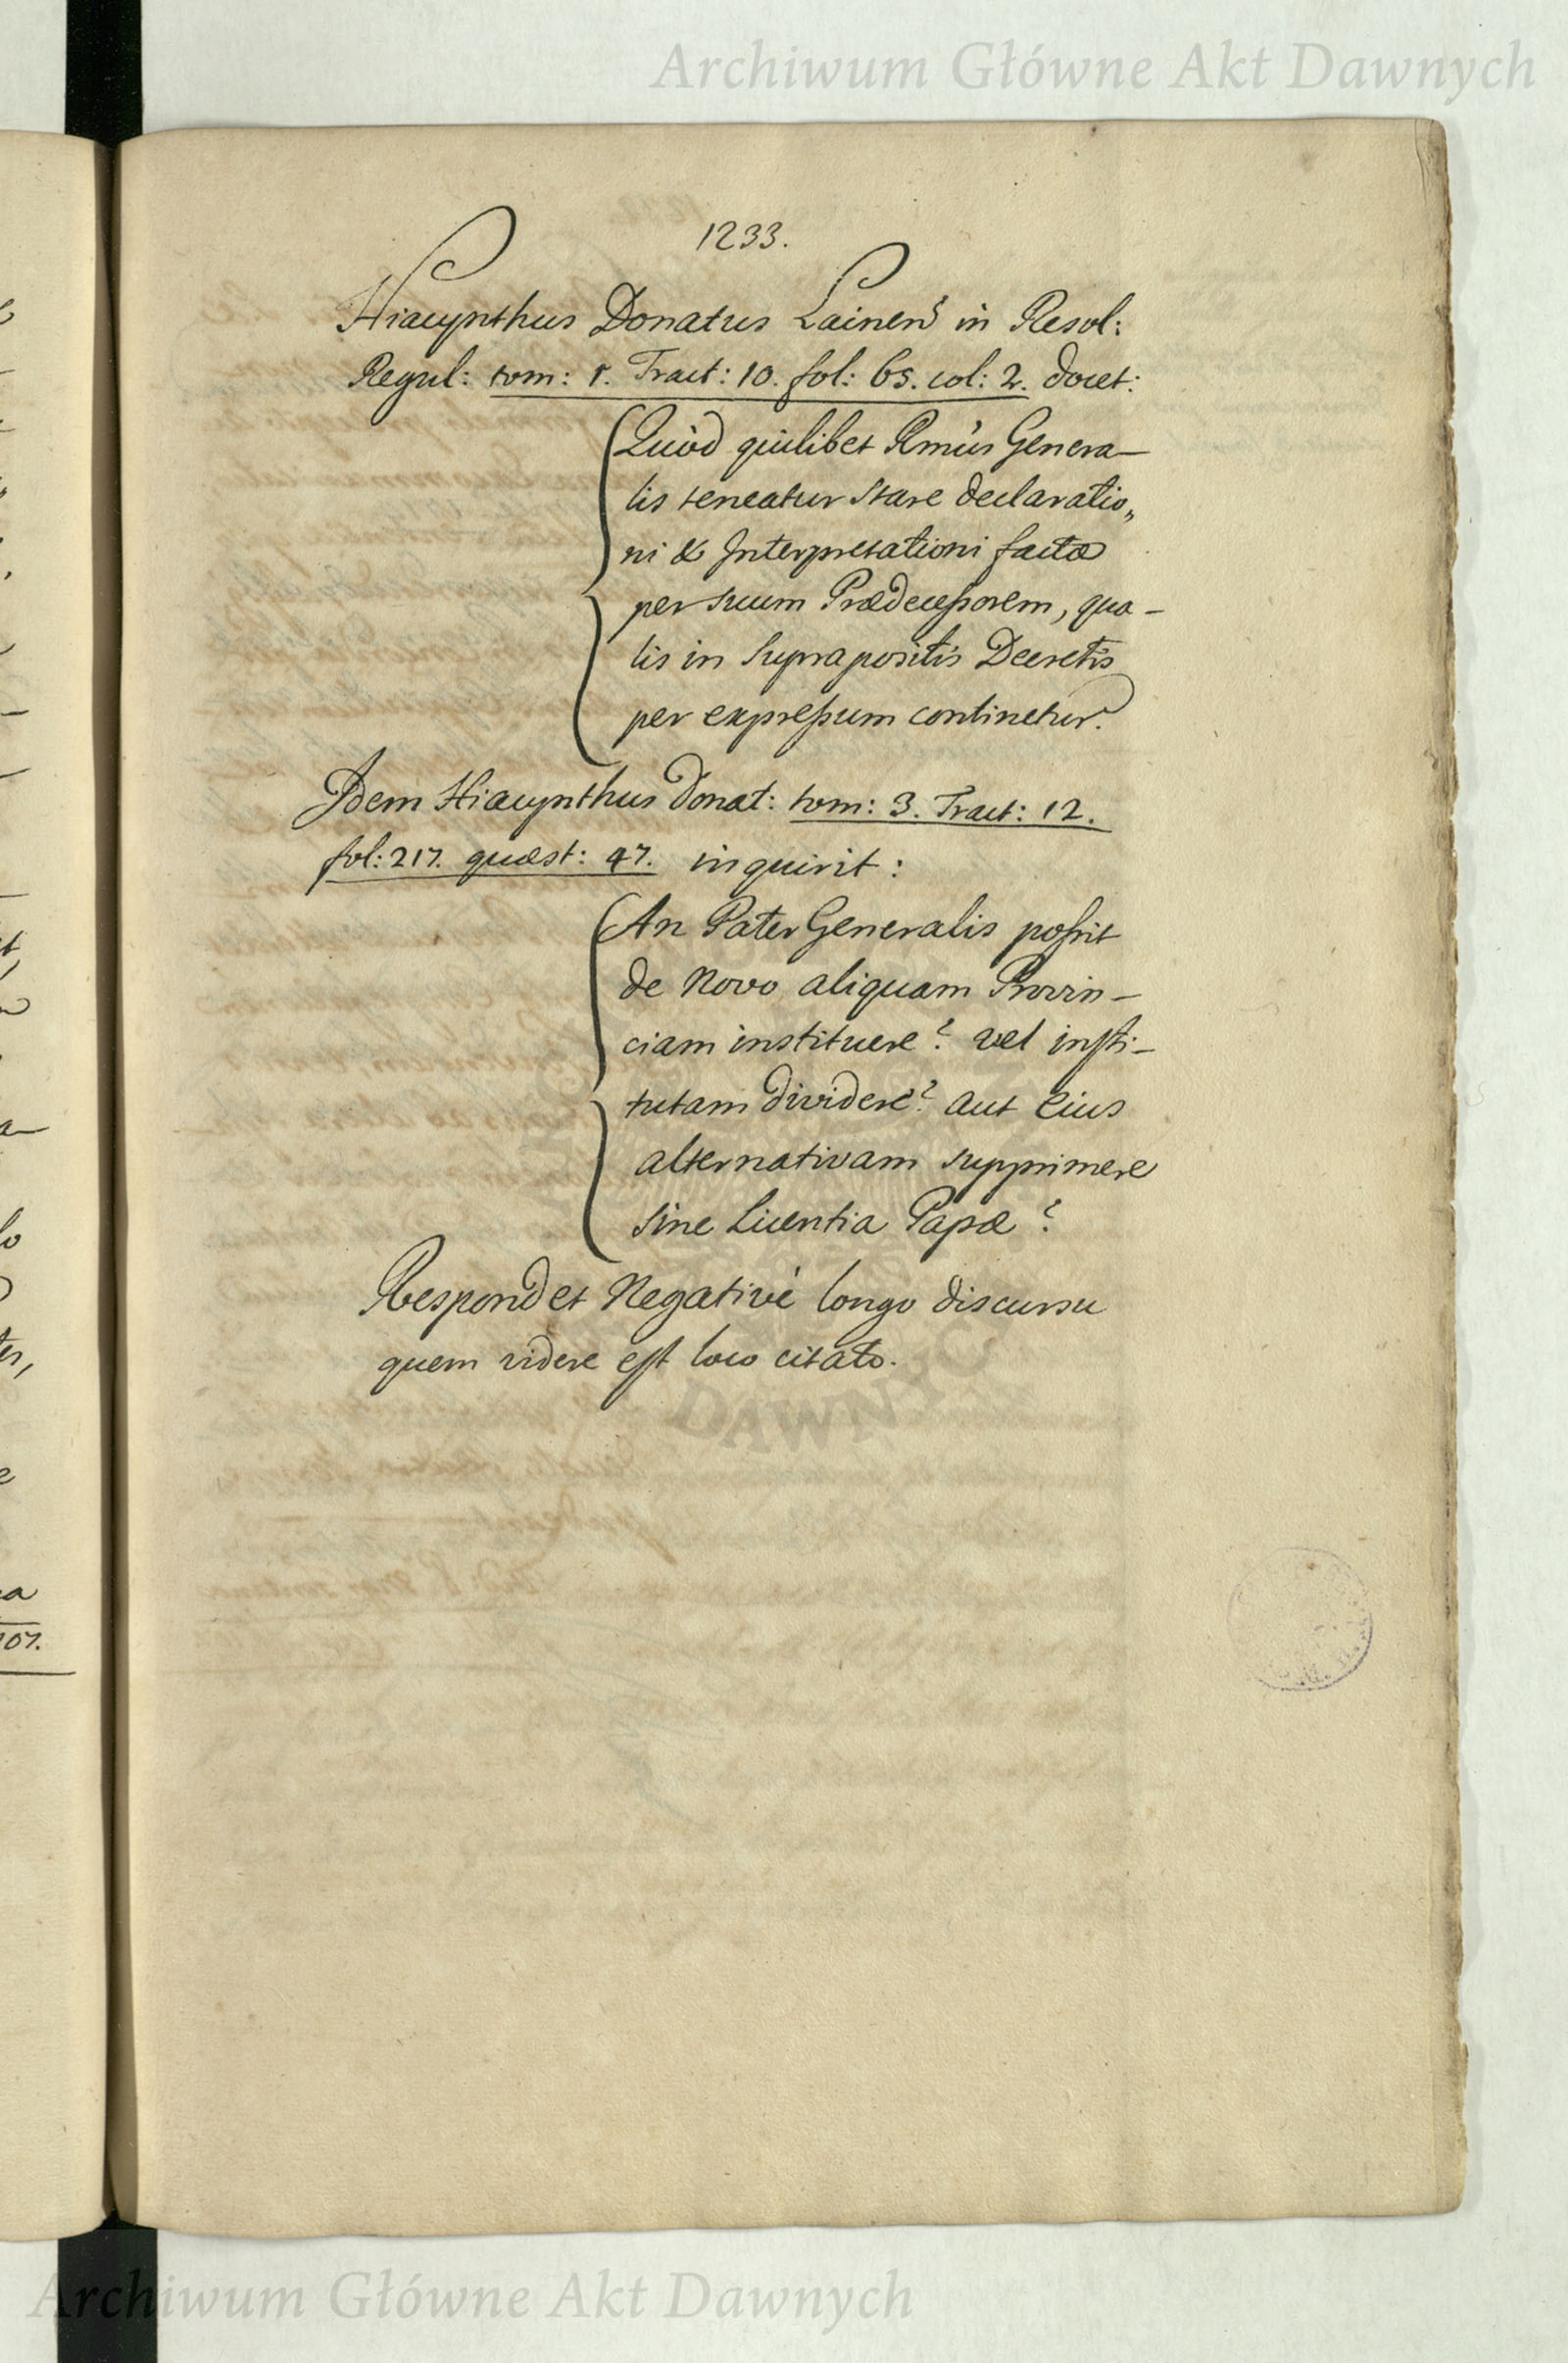 Archiwum Główne Akt Dawnych
1233.
Hiacynthus Donatus Lainens in Resol:
Regul: tom: 1. Tract: 10. fol: 65. col: 2. docet:
Quòd quilibet Rmus Genera-
lis teneatur stare declaratio„
ni & Interpretationi factæ
per suum Prædecessorem, qua-
lis in supra positis Decretis
per expressum continetur.
Idem Hiacynthus Donat: tom: 3. Tract: 12.
fol: 217. quæst: 47. inquirit:
An Pater Generalis possit
de Novo aliquam Provin-
ciam instituere? vel insti-
tutam dividere? aut Eius
alternativam supprimere
sine Licentia Papæ?
Respondet Negativè longo discursu
quem videre est loco citato.
DAWNYC
107.
Archiwum Główne Akt Dawnych